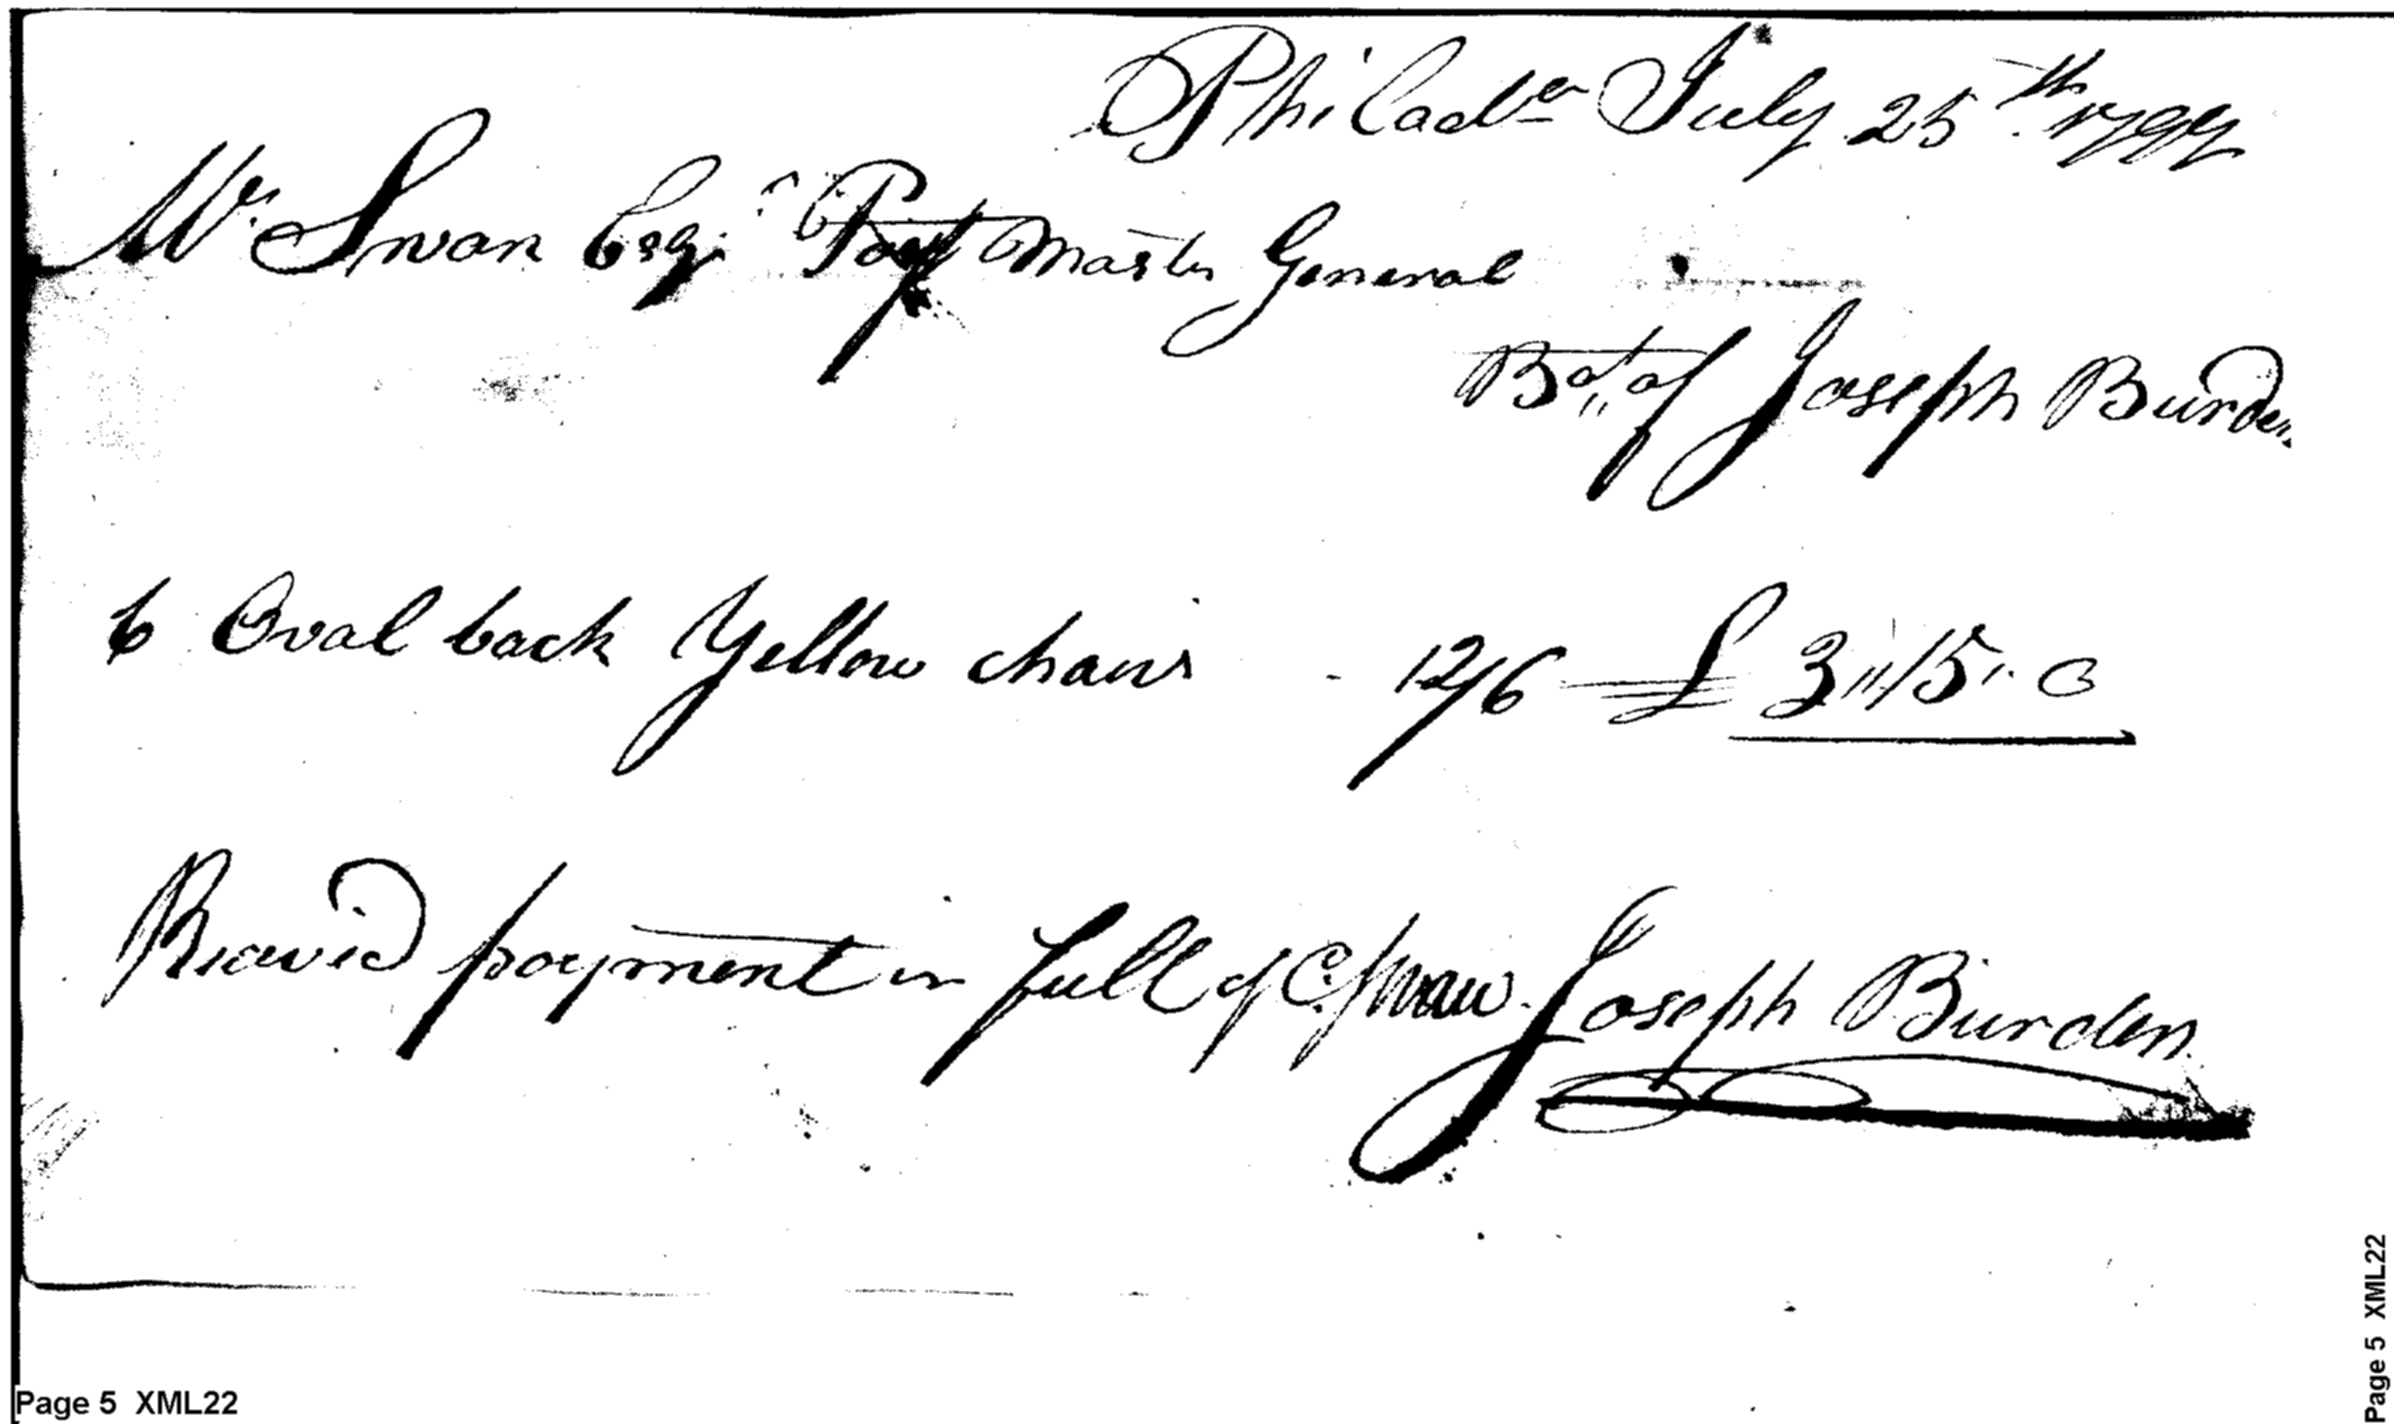 Philad.ª July 25th 1799
Mr. Swan Esqr. Post Master General
Bot of Joseph Burden
6 Oval back Yellow chairs - 12/6 £ 3"15"0
Receivd payment in full of C. Swan Joseph Burden
Page 5 XML22
Page 5 XML22